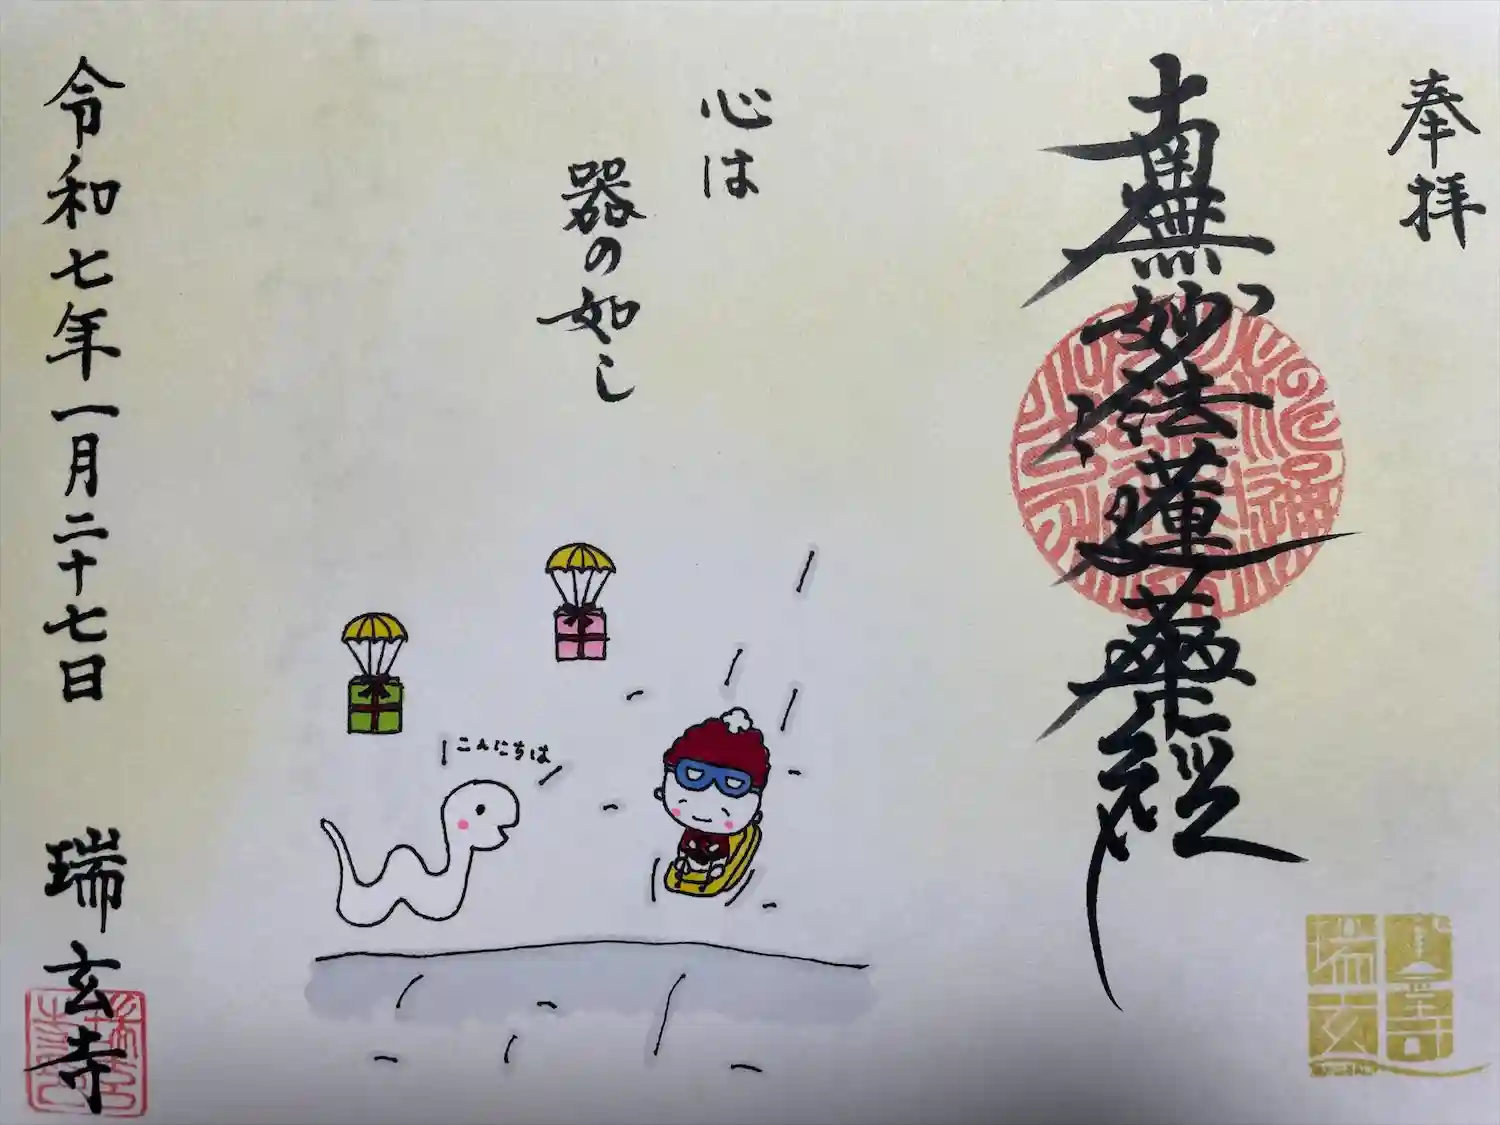 奉拝
南無妙法蓮華経
心は
器の如し
こんにちは
令和七年一月二十七日 瑞玄寺
瑞玄